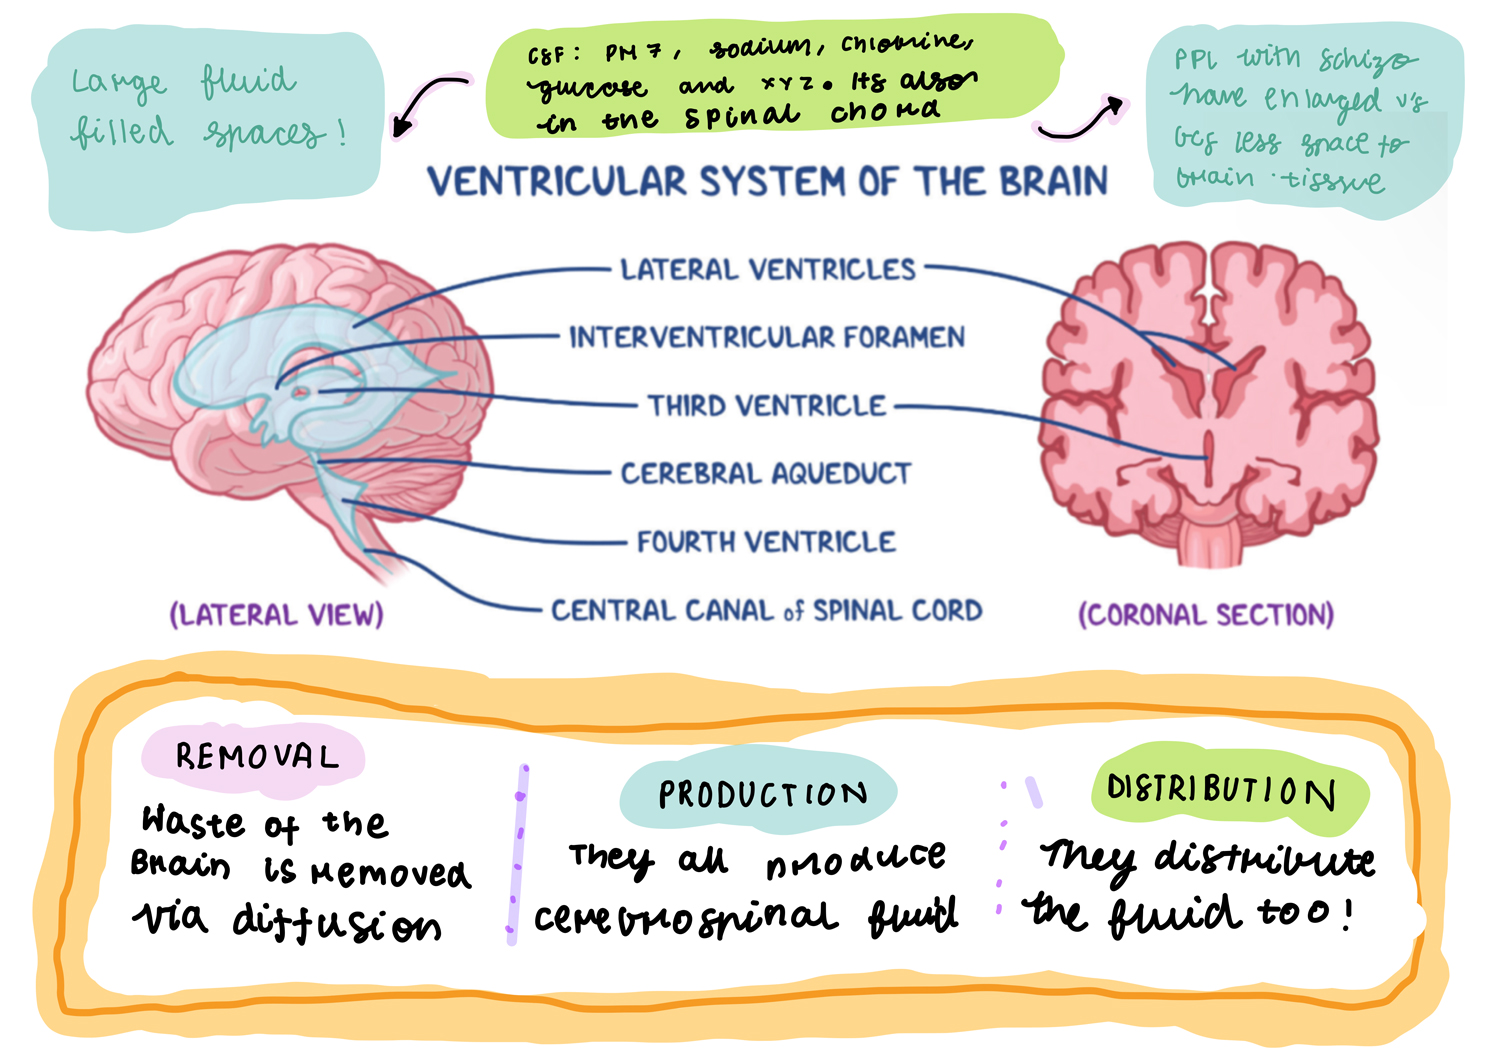 Large fluid
filled spaces!
CSF: PH 7, sodium, chlorine,
glucose and xyz. Its also
in the spinal chord
PPL with schizo
have enlarged v's
bcs less space to
brain tissue
VENTRICULAR SYSTEM OF THE BRAIN
LATERAL VENTRICLES
INTERVENTRICULAR FORAMEN
THIRD VENTRICLE
CEREBRAL AQUEDUCT
FOURTH VENTRICLE
CENTRAL CANAL of SPINAL CORD
(LATERAL VIEW)
(CORONAL SECTION)
REMOVAL
Waste of the
Brain is removed
via diffusion
PRODUCTION
They all produce
cerebrospinal fluid
DISTRIBUTION
They distribute
the fluid too!